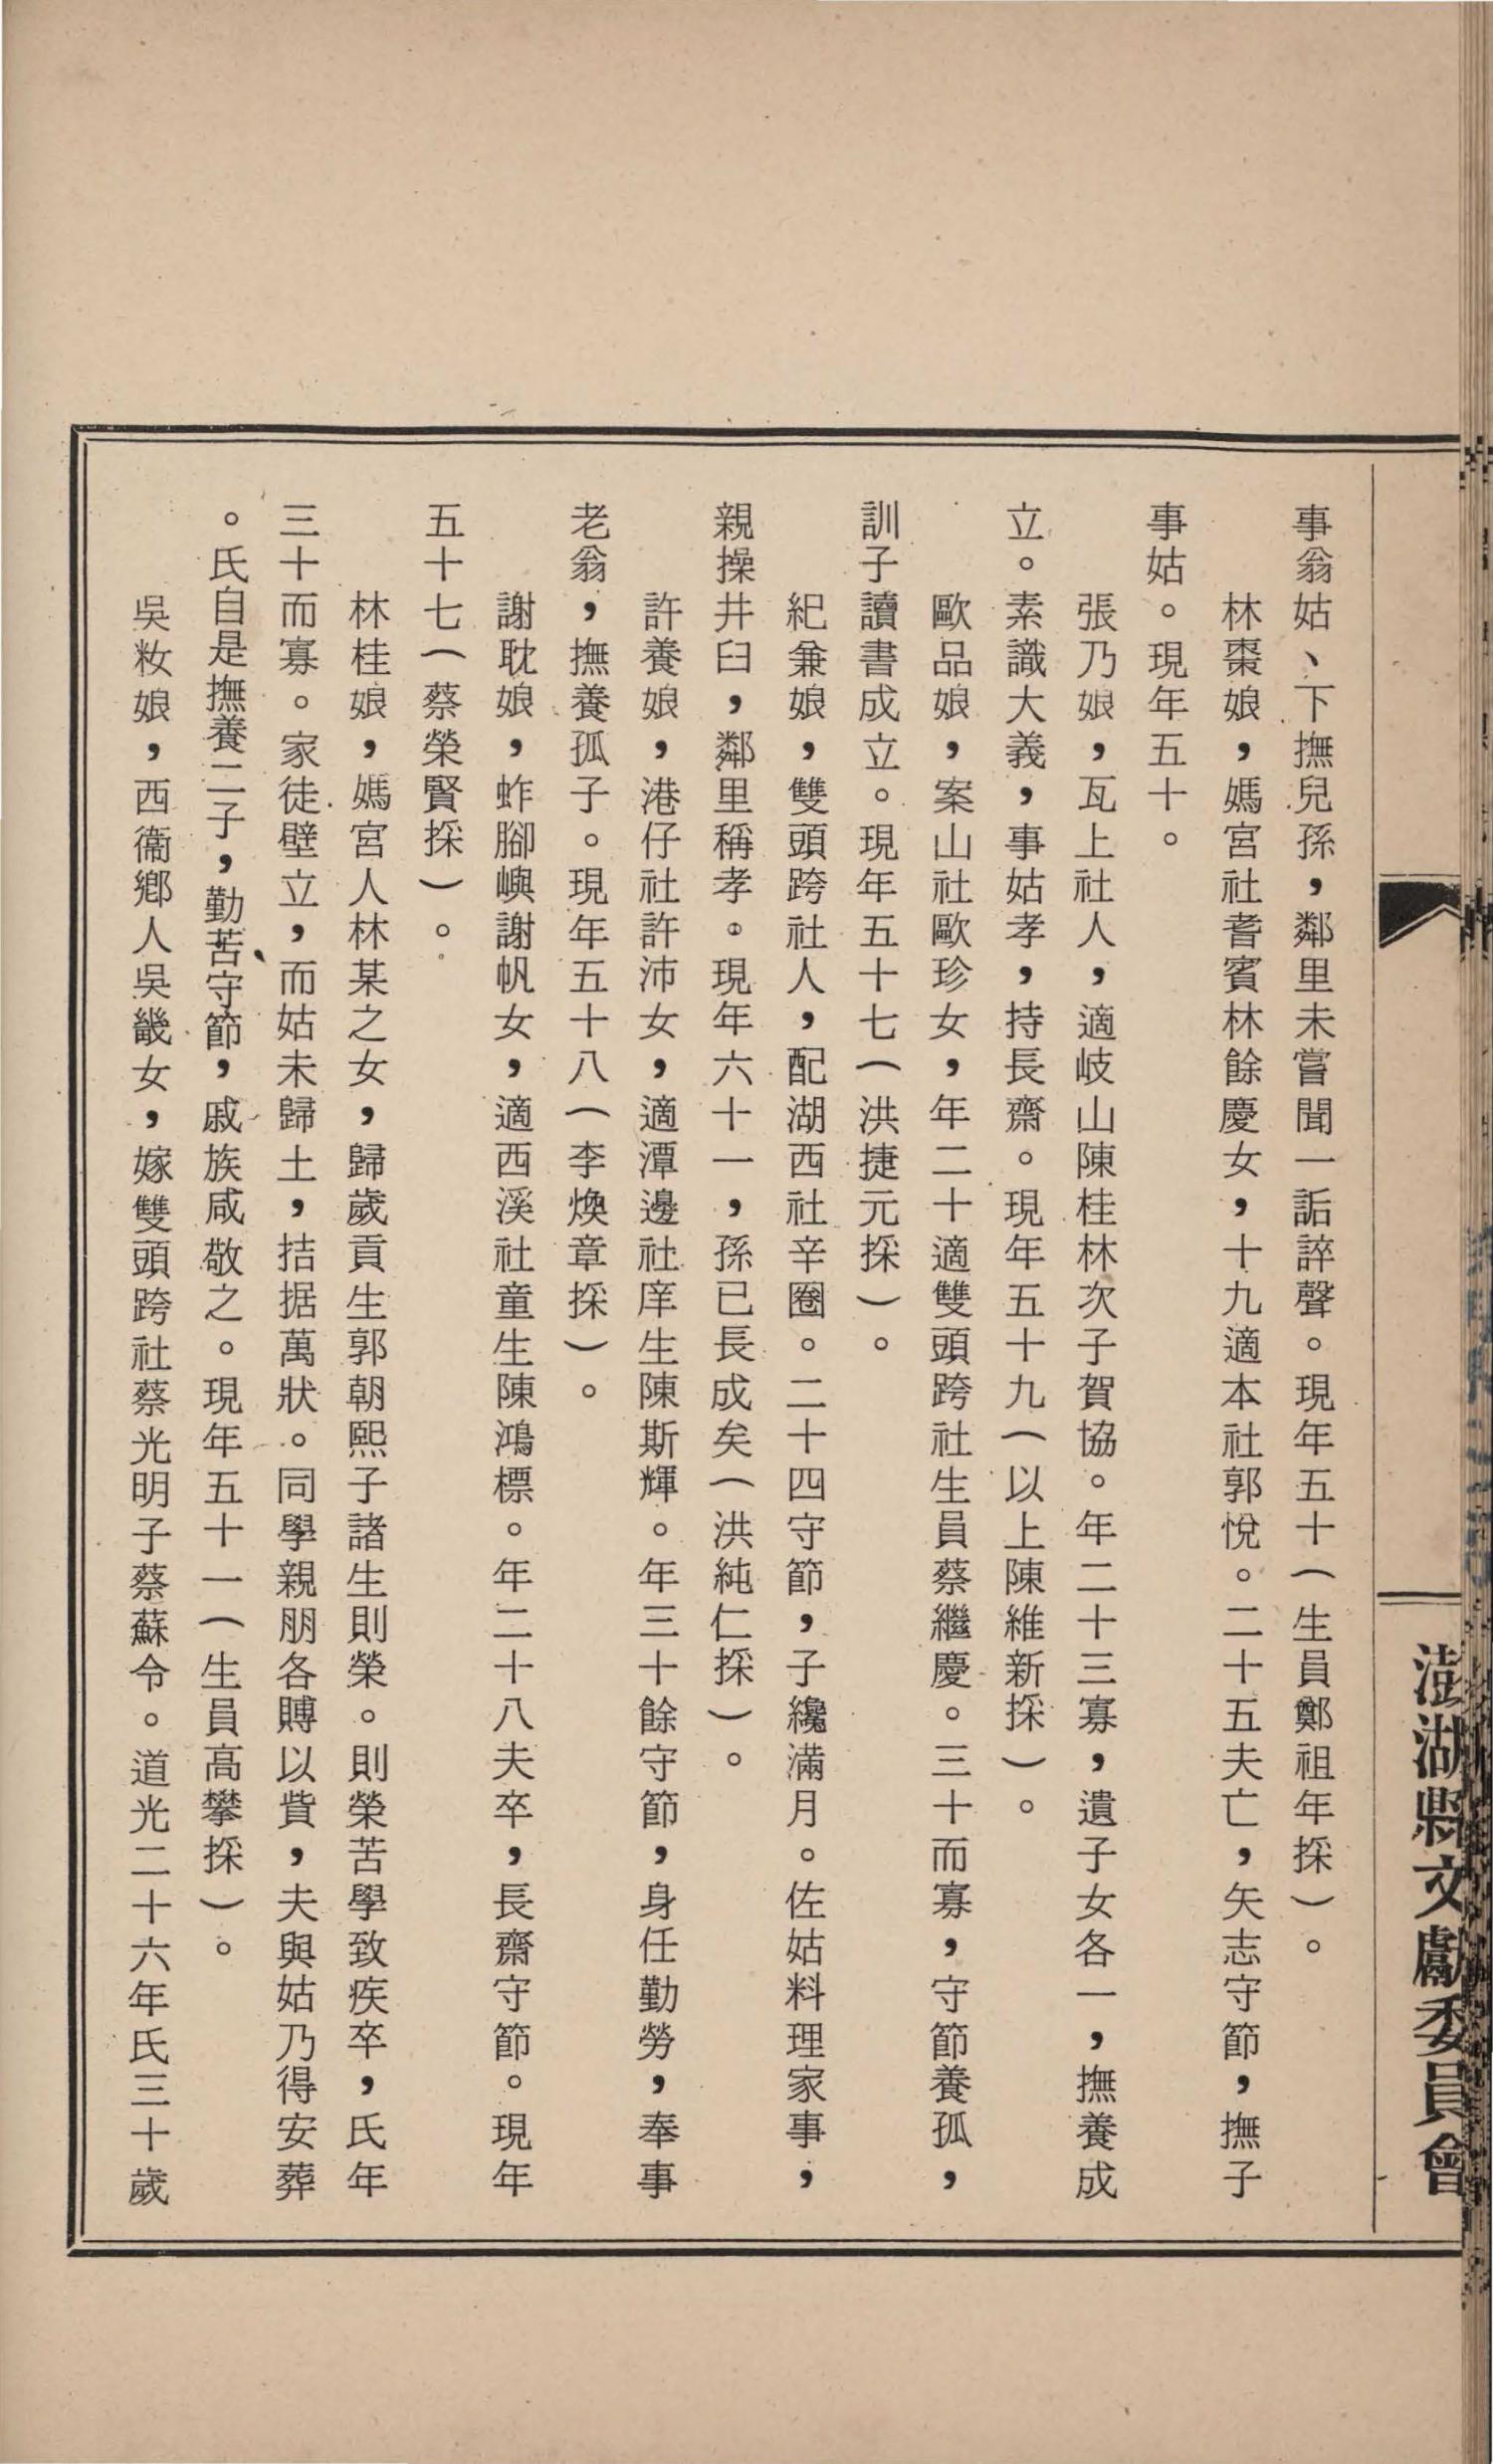 事翁姑、下撫兒孫，鄰里未嘗聞一詬誶聲。現年五十（生員鄭祖年採）。
林棗娘，媽宮社耆賓林餘慶女，十九適本社郭悅。二十五夫亡，矢志守節，撫子
事姑。現年五十。
張乃娘，瓦上社人，適岐山陳桂林次子賀協。年二十三寡，遺子女各一，撫養成
立。素識大義，事姑孝，持長齋。現年五十九（以上陳維新採）。
歐品娘，案山社歐珍女，年二十適雙頭跨社生員蔡繼慶。三十而寡，守節養孤，
訓子讀書成立。現年五十七（洪捷元採）。
紀兼娘，雙頭跨社人，配湖西社辛圈。二十四守節，子纔滿月。佐姑料理家事，
親操井臼，鄰里稱孝。現年六十一，孫已長成矣（洪純仁採）。
許養娘，港仔社許沛女，適潭邊社庠生陳斯輝。年三十餘守節，身任勤勞，奉事
老翁，撫養孤子。現年五十八（李煥章採）。
謝耽娘，蚱腳嶼謝帆女，適西溪社童生陳鴻標。年二十八夫卒，長齋守節。現年
五十七（蔡榮賢採）。
林桂娘，媽宮人林某之女，歸歲貢生郭朝熙子諸生則榮。則榮苦學致疾卒，氏年
三十而寡。家徒壁立，而姑未歸土，拮据萬狀。同學親朋各賻以貲，夫與姑乃得安葬
。氏自是撫養二子，勤苦守節，戚族咸敬之。現年五十一（生員高攀採）。
吳籹娘，西衞鄉人吳畿女，嫁雙頭跨社蔡光明子蔡蘇令。道光二十六年氏三十歲
澎湖縣文獻委員會